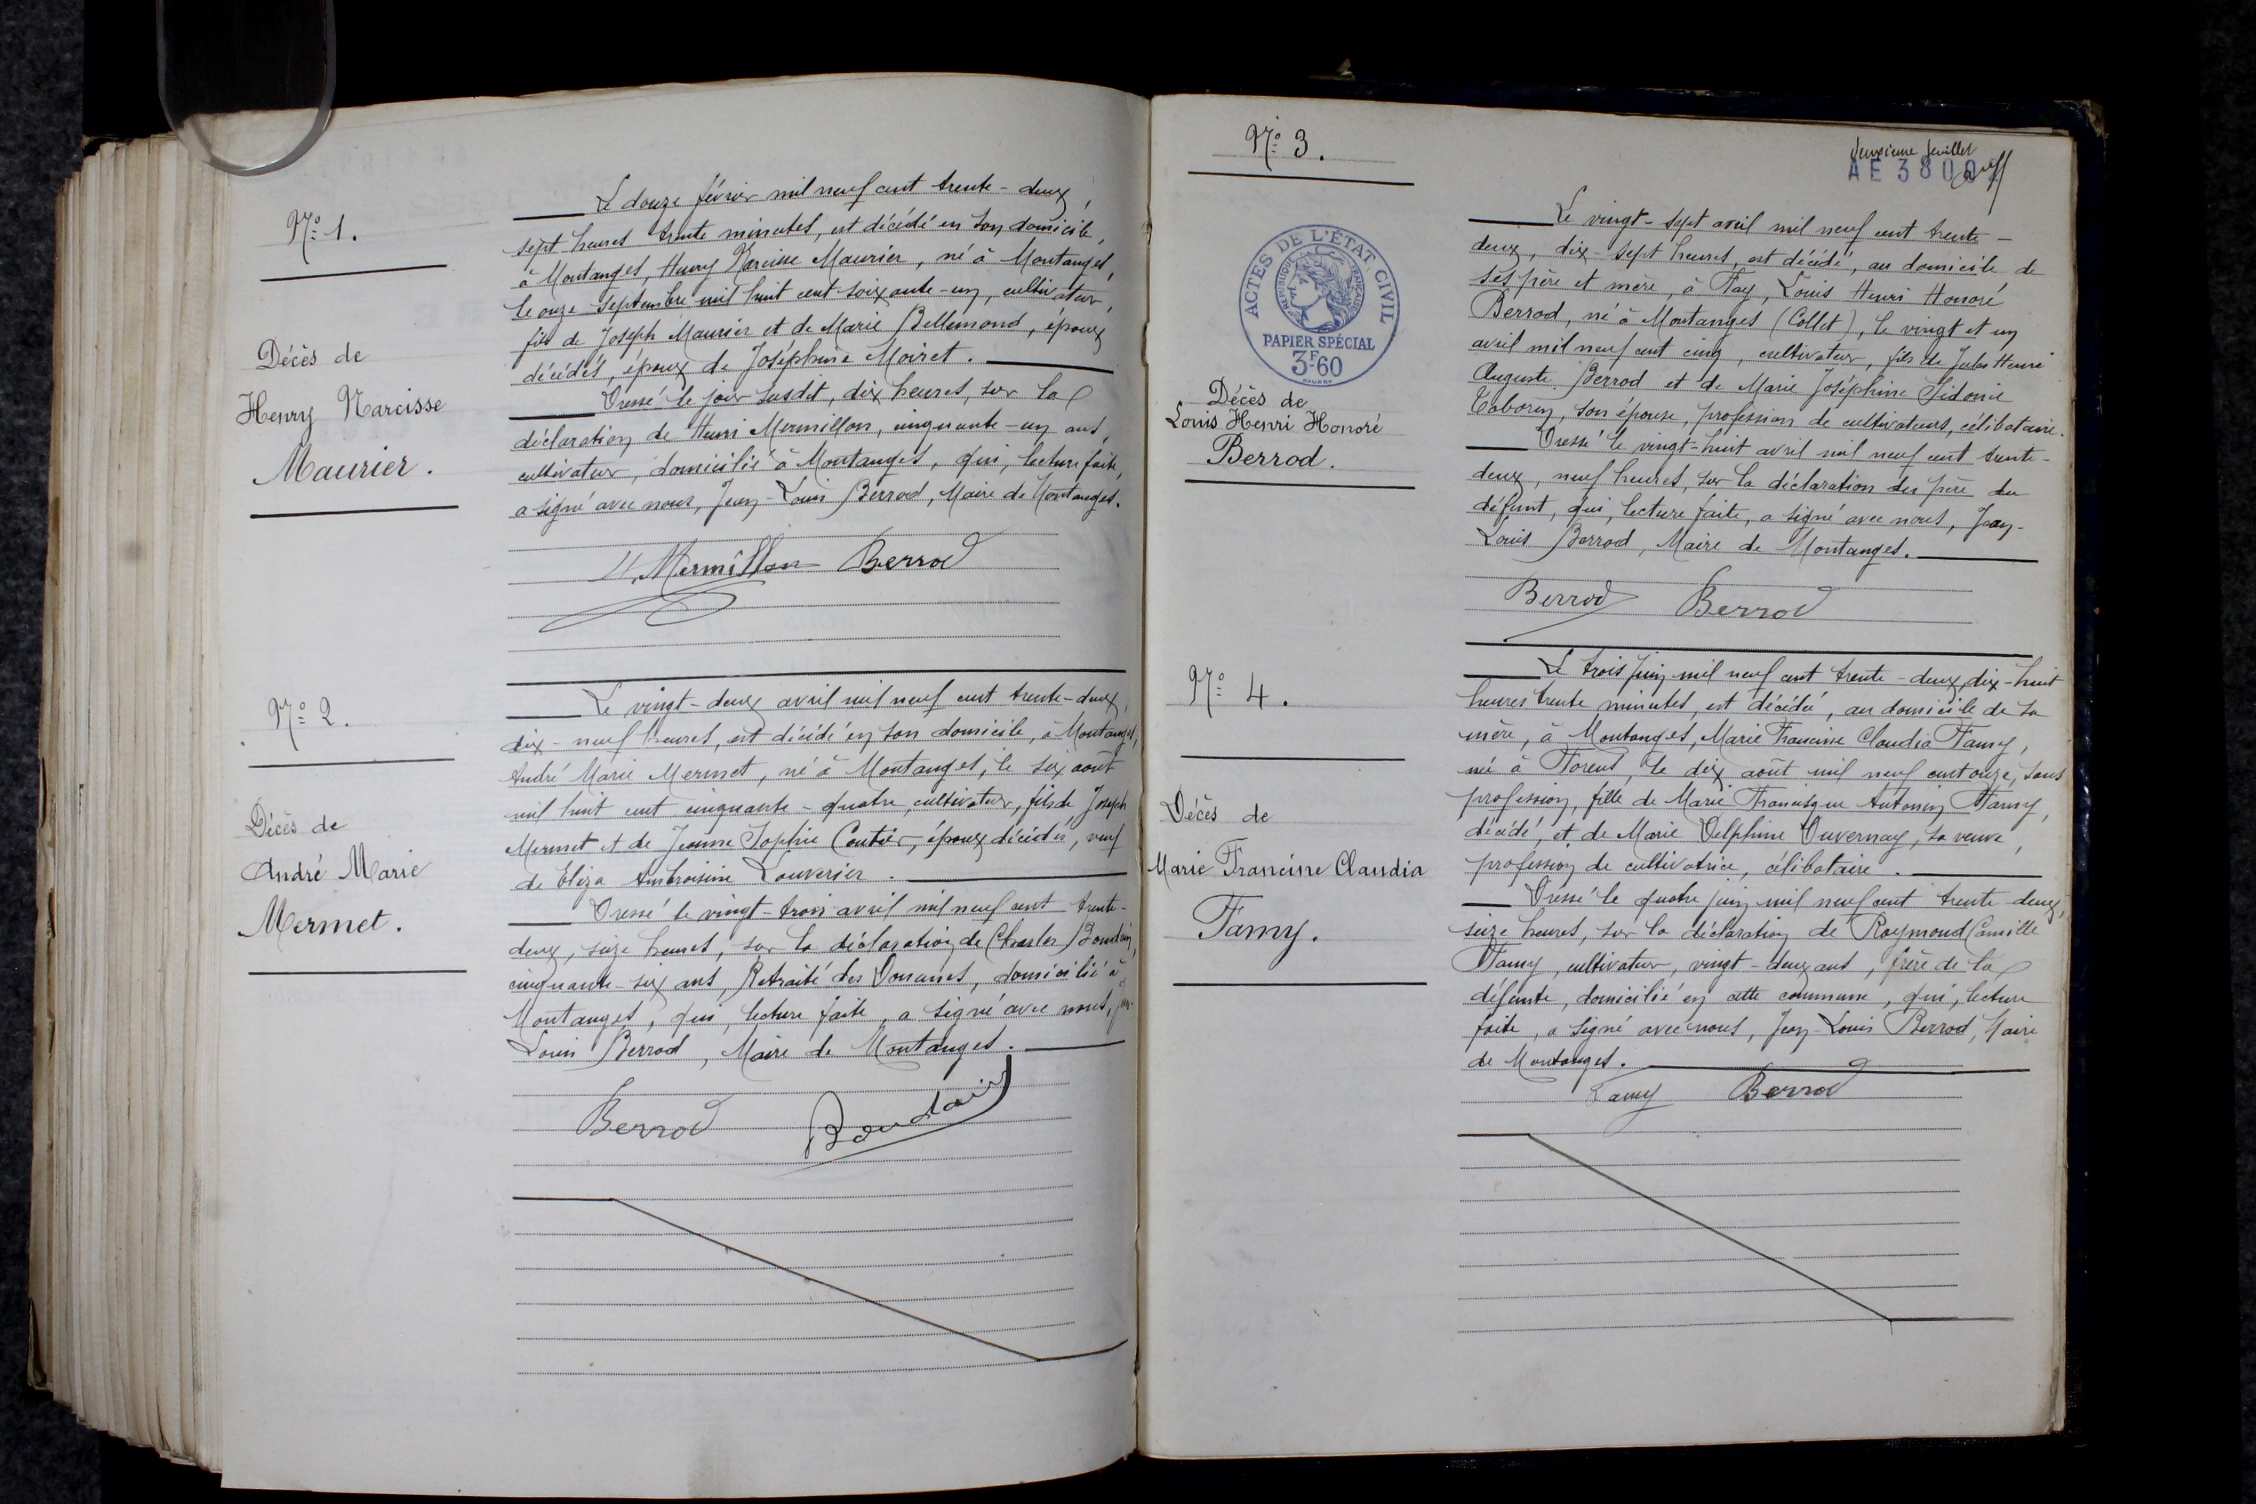 Nº 1.
Décès de
Henry Narcisse
Maurier.
Le douze février mil neuf cent trente-deux,
sept heures trente minutes, est décédé en son domicile,
à Montanges, Henry Narcisse Maurier, né à Montanges,
le onze septembre mil huit cent soixante-un, cultivateur,
fils de Joseph Maurier et de Marie Bellemond, époux
décédés, époux de Joséphine Moiret.
Dressé le jour susdit, dix heures, sur la
déclaration de Henri Mermillon, cinquante-un ans,
cultivateur, domicilié à Montanges, qui, lecture faite,
a signé avec nous, Jean-Louis Berrod, Maire de Montanges.
H. Mermillon Berrod
Nº 2.
Décès de
André Marie
Mermet.
Le vingt-deux avril mil neuf cent trente-deux,
dix-neuf heures, est décédé en son domicile, à Montanges,
André Marie Mermet, né à Montanges, le six août
mil huit cent cinquante-quatre, cultivateur, fils de Joseph
Mermet et de Jeanne Sophie Coutier, époux décédés, veuf
de Eliza Ambroisine Louverier.
Dressé le vingt-trois avril mil neuf cent trente-
deux, seize heures, sur la déclaration de Charles Boudain,
cinquante-six ans, Retraité des Douanes, domicilié à
Montanges, qui, lecture faite, a signé avec nous, Jean-
Louis Berrod, Maire de Montanges.
Berrod Boudain
Nº 3.
deuxième feuillet
AE 380
ACTES DE L'ÉTAT CIVIL
RÉPUBLIQUE FRANÇAISE
PAPIER SPÉCIAL
3F60
Décès de
Louis Henri Honoré
Berrod.
Le vingt-sept avril mil neuf cent trente-
deux, dix-sept heures, est décédé, au domicile de
ses père et mère, à Fay, Louis Henri Honoré
Berrod, né à Montanges (Collet), le vingt et un
avril mil neuf cent cinq, cultivateur, fils de Jules Henri
Auguste Berrod et de Marie Joséphine Sidonie
Taborin, son épouse, profession de cultivateurs, célibataire.
Dressé le vingt-huit avril mil neuf cent trente-
deux, neuf heures, sur la déclaration du père du
défunt, qui, lecture faite, a signé avec nous, Jean-
Louis Berrod, Maire de Montanges.
Berrod Berrod
Nº 4.
Décès de
Marie Francine Claudia
Famy.
Le trois juin mil neuf cent trente-deux, dix-huit
heures trente minutes, est décédée, au domicile de sa
mère, à Montanges, Marie Francine Claudia Famy,
née à Forens, le dix août mil neuf cent onze, sans
profession, fille de Marie Francisque Antonin Famy,
décédé, et de Marie Delphine Duvernay, sa veuve,
profession de cultivatrice, célibataire.
Dressé le quatre juin mil neuf cent trente-deux,
seize heures, sur la déclaration de Raymond Camille
Famy, cultivateur, vingt-deux ans, frère de la
défunte, domicilié en cette commune, qui, lecture
faite, a signé avec nous, Jean-Louis Berrod, Maire
de Montanges.
Famy Berrod